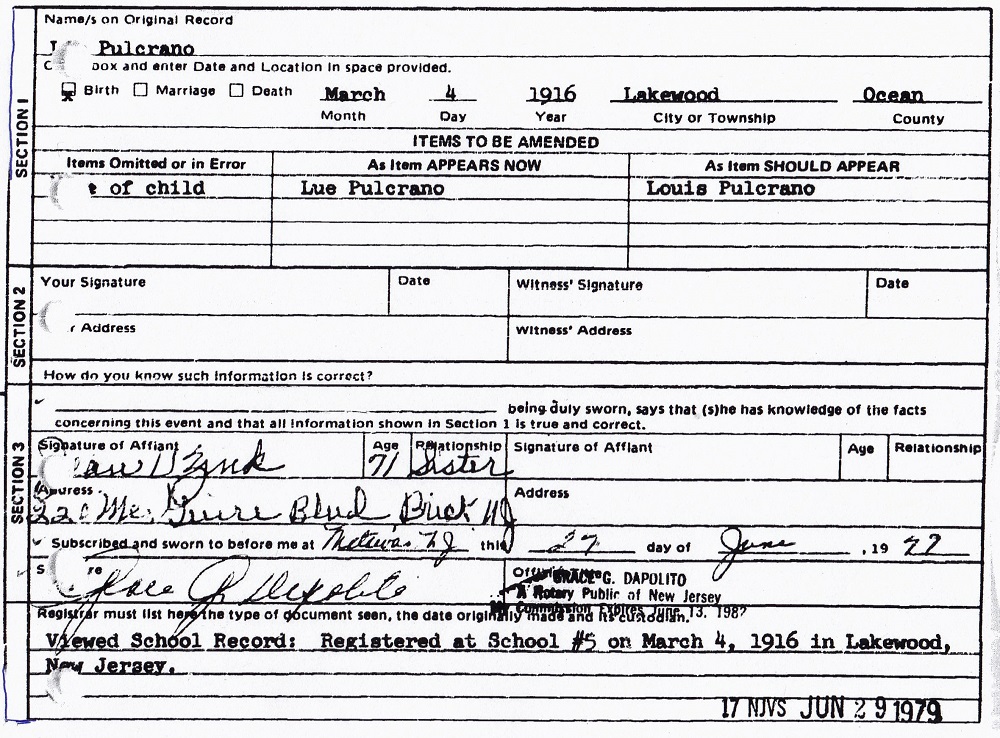 Name/s on Original Record
Pulcrano
box and enter Date and Location in space provided.
Birth Marriage Death March 4 1916 Lakewood Ocean
Month Day Year City or Township County
SECTION 1
ITEMS TO BE AMENDED
Items Omitted or in Error As Item APPEARS NOW As Item SHOULD APPEAR
of child Lue Pulcrano Louis Pulcrano
SECTION 2
Your Signature Date Witness' Signature Date
Address Witness' Address
How do you know such information is correct?
SECTION 3
being duly sworn, says that (s)he has knowledge of the facts
concerning this event and that all information shown in Section 1 is true and correct.
Signature of Affiant Age Relationship Signature of Affiant Age Relationship
71 Sister
Address Address
Blvd Brick NJ
Subscribed and sworn to before me at NJ this 27 day of June , 19
Grace G. Dapolito
GRACE G. DAPOLITO
A Notary Public of New Jersey
Commission Expires June 13, 198?
Registrar must list here the type of document seen, the date originally made and its custodian.
Viewed School Record: Registered at School #5 on March 4, 1916 in Lakewood,
New Jersey.
17 NJVS JUN 29 1979